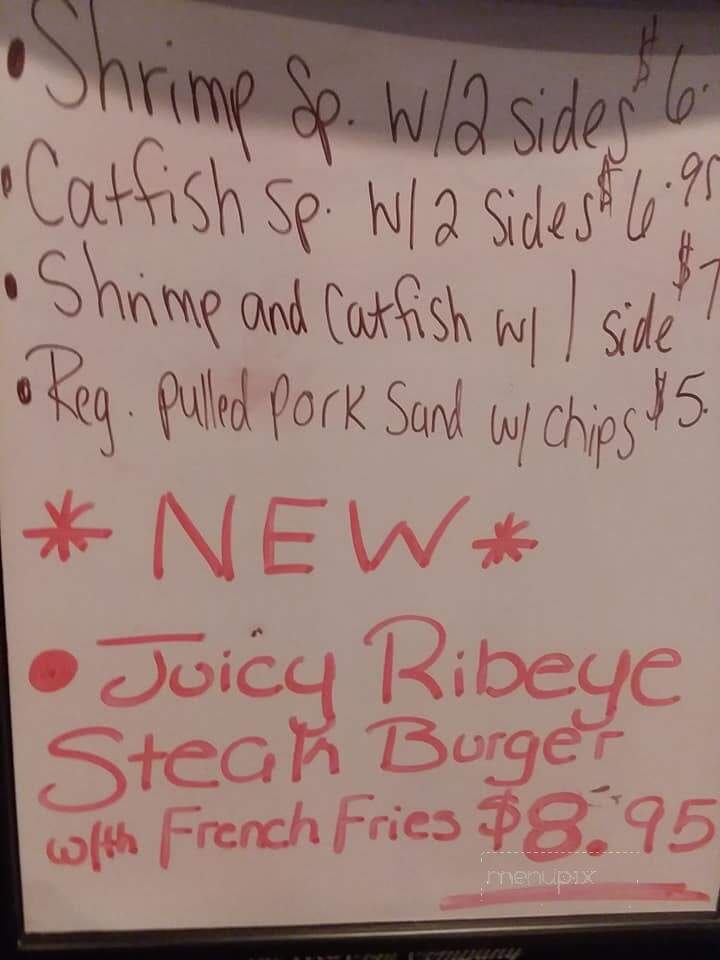 • Shrimp Sp. w/2 sides $6.
• Catfish Sp. w/2 Sides $6.95
• Shrimp and Catfish w/ 1 side $7
• Reg. pulled pork Sand w/ chips $5.
* NEW *
• Juicy Ribeye
Steak Burger
with French Fries $8.95
menupix